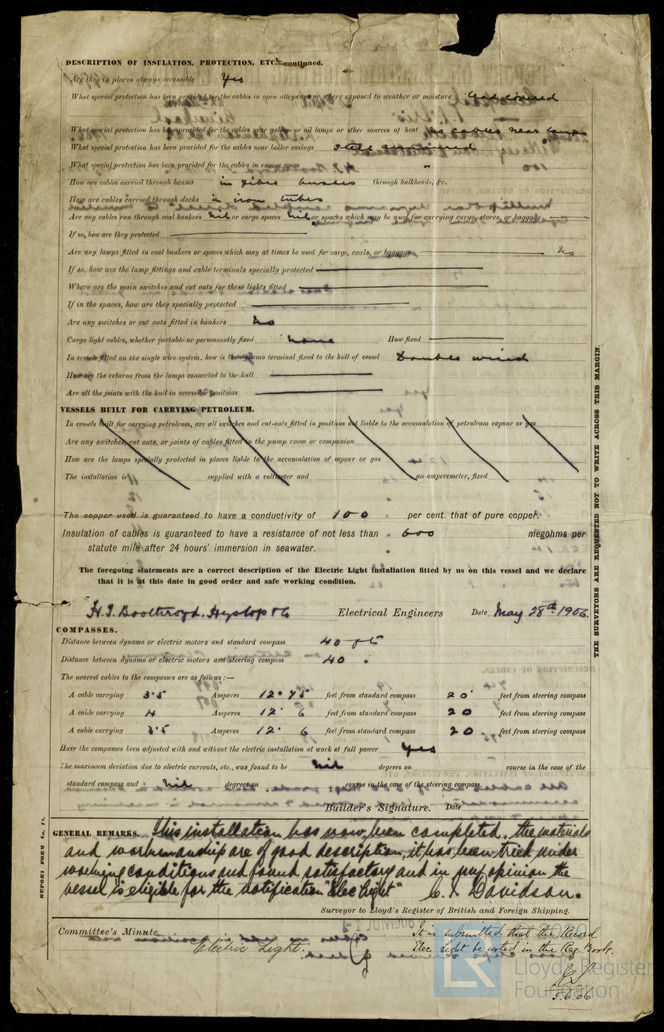 DESCRIPTION OF INSULATION, PROTECTION, ETC.—continued.
Are they in places always accessible Yes
What special protection has been provided for the cables in open alleyways or where exposed to weather or moisture Lead covered
What special protection has been provided for the cables near galleys or oil lamps or other sources of heat No cables near lamps
What special protection has been provided for the cables near boiler casings steel armoured
What special protection has been provided for the cables in engine room "
How are cables carried through beams in fibre bushes through bulkheads, &c.
How are cables carried through decks in iron tubes
Are any cables run through coal bunkers Nil or cargo spaces Nil or spaces which may be used for carrying cargo, stores, or baggage
If so, how are they protected
Are any lamps fitted in coal bunkers or spaces which may at times be used for cargo, coals, or baggage No
If so, how are the lamp fittings and cable terminals specially protected
Where are the main switches and cut outs for these lights fitted
If in the spaces, how are they specially protected
Are any switches or cut outs fitted in bunkers No
Cargo light cables, whether portable or permanently fixed None How fixed
In vessels fitted on the single wire system, how is the dynamo terminal fixed to the hull of vessel Double wired
How are the returns from the lamps connected to the hull
Are all the joints with the hull in accessible positions
VESSELS BUILT FOR CARRYING PETROLEUM.
In vessels built for carrying petroleum, are all switches and cut-outs fitted in positions not liable to the accumulation of petroleum vapour or gas
Are any switches, cut outs, or joints of cables fitted in the pump room or companion
How are the lamps specially protected in places liable to the accumulation of vapour or gas
The installation is supplied with a voltmeter and an amperemeter, fixed
The copper used is guaranteed to have a conductivity of 100 per cent. that of pure copper.
Insulation of cables is guaranteed to have a resistance of not less than 600 megohms per
statute mile after 24 hours' immersion in seawater.
The foregoing statements are a correct description of the Electric Light installation fitted by us on this vessel and we declare
that it is at this date in good order and safe working condition.
H. J. Boothroyd, Hyslop & Co Electrical Engineers Date May 28th 1906.
COMPASSES.
Distance between dynamo or electric motors and standard compass 40 ft
Distance between dynamo or electric motors and steering compass 40 "
The nearest cables to the compasses are as follows:—
A cable carrying 3.5 Amperes 12.75 feet from standard compass 20 feet from steering compass
A cable carrying 4 Amperes 12.6 feet from standard compass 20 feet from steering compass
A cable carrying 3.5 Amperes 12.6 feet from standard compass 20 feet from steering compass
Have the compasses been adjusted with and without the electric installation at work at full power Yes
The maximum deviation due to electric currents, etc., was found to be Nil degrees on course in the case of the
standard compass and Nil degrees on course in the case of the steering compass.
Builder's Signature. Date
GENERAL REMARKS. This installation has now been completed, the materials
and workmanship are of good description, it has been tried under
working conditions and found satisfactory and in my opinion the
vessel is eligible for the notification "Elec light" C. I. Davidson.
Surveyor to Lloyd's Register of British and Foreign Shipping.
Committee's Minute
Electric Light.
It is submitted that the Record
Elec. Light be noted in the Reg. Book.
5.6.06
THE SURVEYORS ARE REQUESTED NOT TO WRITE ACROSS THIS MARGIN.
REPORT FORM No. 17.
LR
Lloyd's Register
Foundation